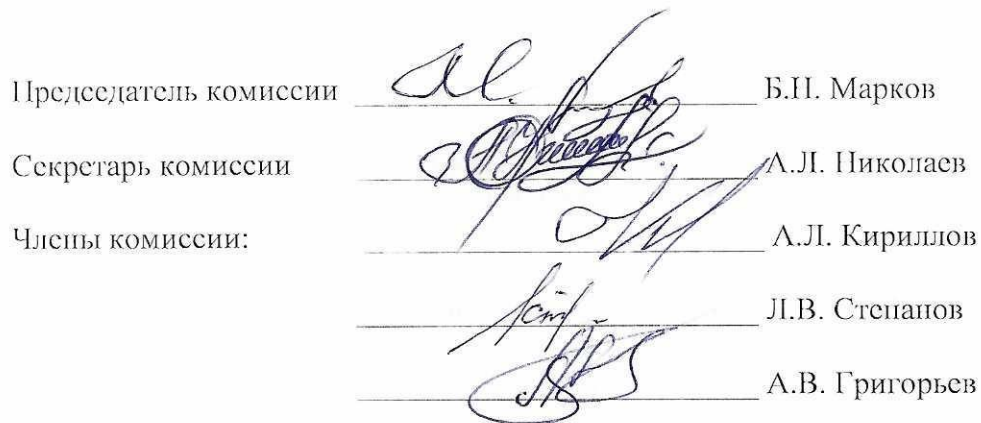 Председатель комиссии Б.Н. Марков
Секретарь комиссии А.Л. Николаев
Члены комиссии: А.Л. Кириллов
Л.В. Степанов
А.В. Григорьев